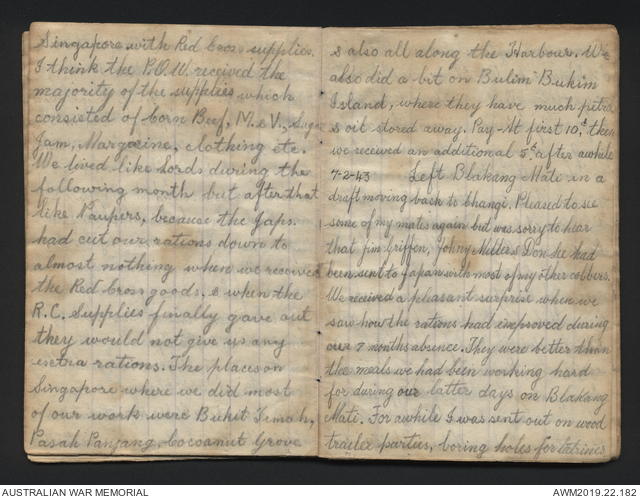 Singapore with Red Cross supplies.
I think the P.O.W. received the
majority of the supplies which
consisted of Corn Beef, M. & V., Sugar
Jam, Margarine, clothing etc.
We lived like Lords during the
following month but after that
like Paupers, because the Japs.
had cut our rations down to
almost nothing when we received
the Red Cross goods. & when the
R.C. Supplies finally gave out
they would not give us any
exstra rations. The places on
Singapore where we did most
of our work were Bukit Timah,
Pasah Panjang, Cocoanut Grove
& also all along the Harbour. We
also did a bit on Bulim Bukim
Island, where they have much petrol
& oil stored away. Pay - At first 10¢ then
we received an additional 5¢ after awhile
7-2-43 Left Blakang Mati in a
draft moving back to Changi. Pleased to see
some of my mates again but was sorry to hear
that Jim Griffen, Johny Miller & Don had
been sent to Japan with most of my other cobbers.
We received a pleasant surprise when we
saw how the rations had improved during
our 7 months absence. They were better than
the meals we had been working hard
for during our latter days on Blakang
Mati. For awhile I was sent out on wood
trailer parties, boring holes for latrines
AUSTRALIAN WAR MEMORIAL
AWM2019.22.182